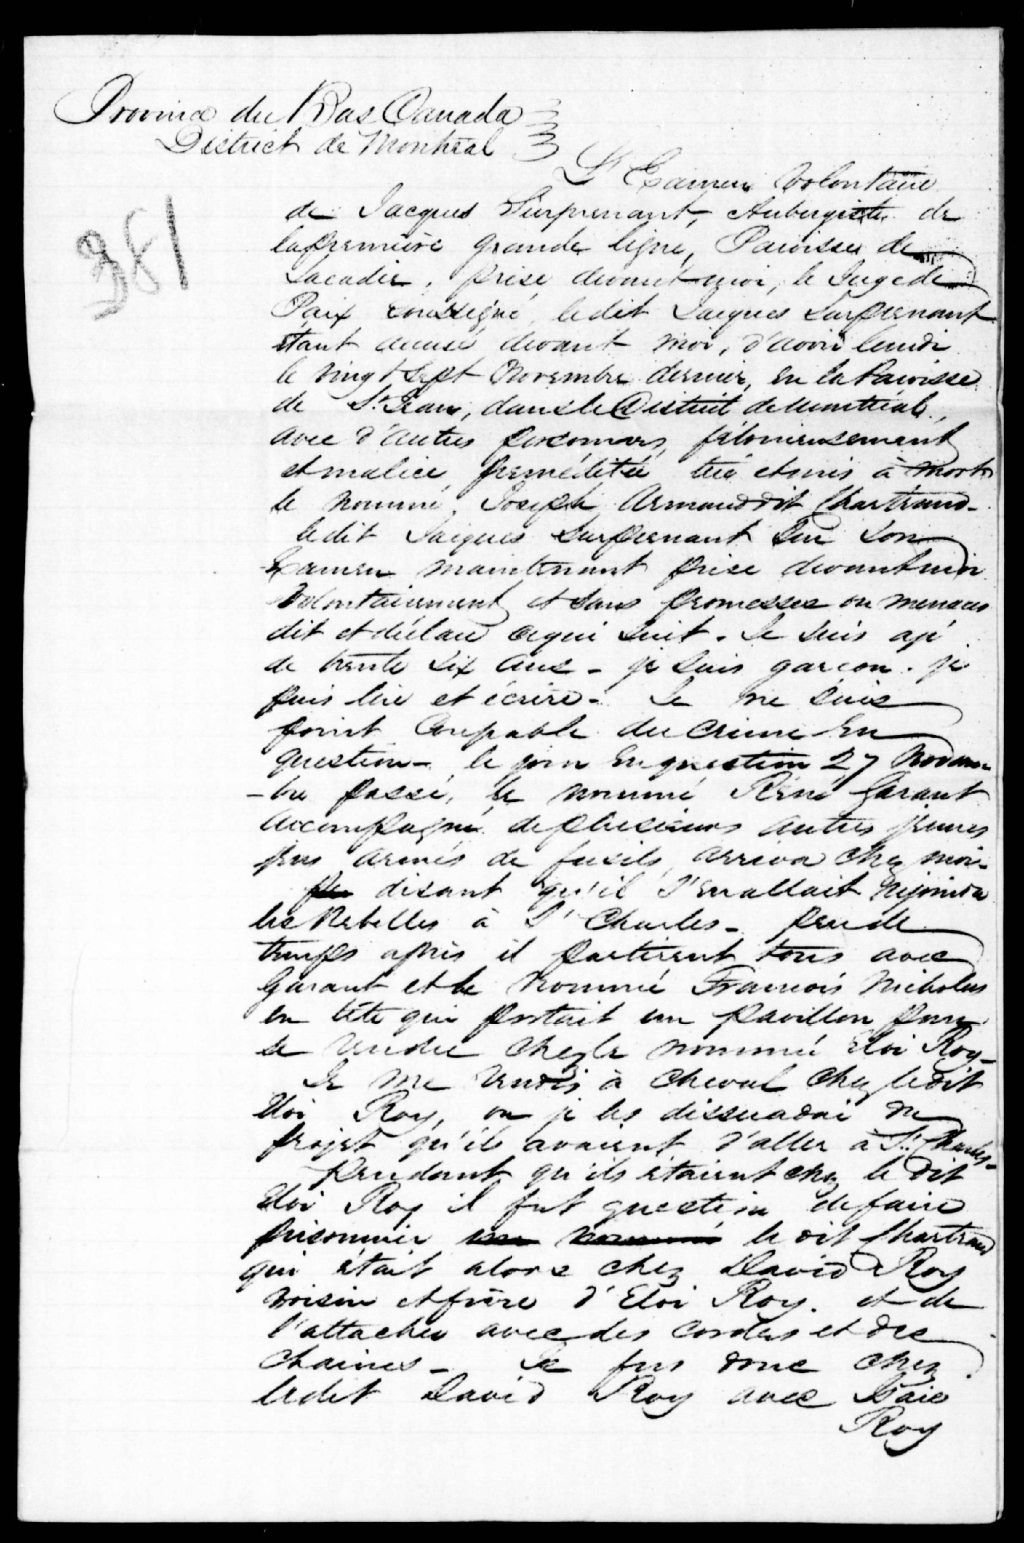 Province du Bas Canada
District de Montréal
381
L'Examen Volontaire
de Jacques Surprenant, Aubergiste de
la première grande ligne, Paroisse de
Lacadie, prise devant moi, le Juge de
Paix soussigné, ledit Jacques Surprenant
étant accusé devant moi, d'avoir lundi
le vingt Sept Novembre dernier, en la Paroisse
de St Jean, dans le District de Montréal,
avec d'autres personnes, félonieusement
et malice préméditée tué et mis à mort
le nommé Joseph Armand dit Chartrand -
ledit Jacques Surprenant sur son
Examen maintenant prise devant moi
Volontairement et sans promesses ou menaces
dit et déclare ce qui suit. Je suis agé
de trente six ans - je suis garçon. je
puis lire et écrire - Je ne suis
point Coupable du crime en
question - le jour en question 27 Novem-
-bre passé, le nommé Réné Garant
accompagné de plusieurs autres jeunes
gens armés de fusils, arriva chez moi
disant qu'il s'en allait rejoindre
les Rebelles à St Charles - peu de
temps après il partirent tous avec
Garant et le nommé François Nicholas
en tête qui portait un pavillon pour
se rendre chez le nommé Eloi Roy -
Je me rendis à cheval chez ledit
Eloi Roy, ou je les dissuadai du
projet qu'ils avaient d'aller à St Charles -
Pendant qu'ils étaient chez le dit
Eloi Roy il fut question de faire
prisonnier un nommé le dit Chartrand
qui était alors chez David Roy
voisin et frère d'Eloi Roy. et de
l'attacher avec des cordes et des
chaines - Je fus donc chez
ledit David Roy avec Isaie
Roy